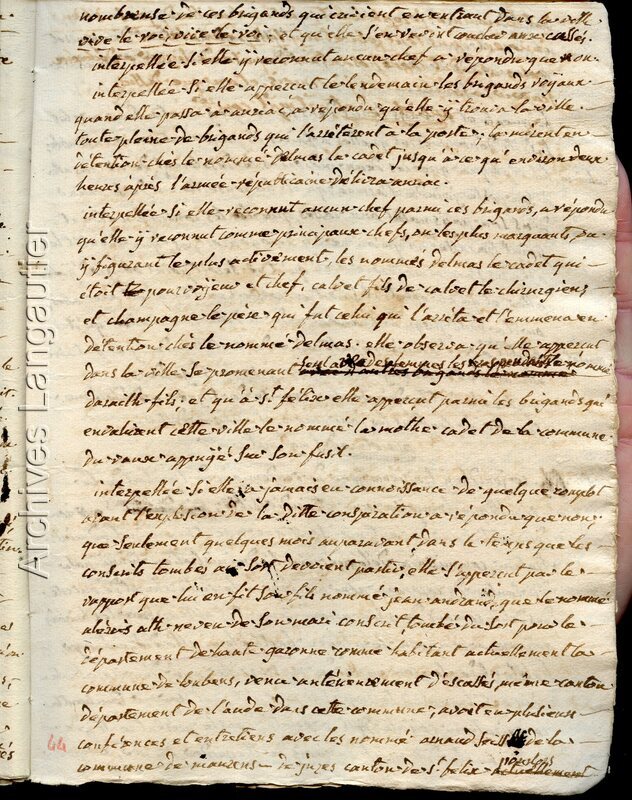 nombreuse de ces brigands qui crioient en entrant dans la ville
vive le roi, vive le roi; et qu'elle s'en revint coucher aux cassés.
interpellée si elle y reconnut aucun chef a répondu que non.
interpellée si elle apperçut le lendemain les brigands royaux
quand elle passa à auriac, a répondu qu'elle y trouva la ville
toute pleine de brigands qui l'arrêterent à la porte; la mirent en
détention chés le nommé delmas le cadet jusqu'à ce qu'environ deux
heures après l'armée républicaine délivra auriac.
interpellée si elle reconnut aucun chef parmi ces brigands, a répondu
qu'elle y reconnut comme principaux chefs, ou les plus marquants, ou
y figurant le plus activement, les nommés delmas le cadet qui
étoit pourvoyeur et chef, calvet fils de calvet le chirurgien,
et champagne le père qui fut celui qui l'arrêta et l'emmena en
détention chés le nommé delmas. elle observa qu'elle apperçut
dans la ville se promenant le nommé
darailh fils; et qu'à st. félix elle apperçut parmi les brigands qui
envahirent cette ville le nommé lamothe cadet de la commune
du vaux appuyé sur son fusil.
interpellée si elle a jamais eu connoissance de quelque complot
avant l'explosion de la ditte conspiration a répondu que non;
que seulement quelques mois auparavant, dans le temps que les
conscrits tombés au sort devoient partir, elle s'apperçut par le
rapport que lui en fit son fils nommé jean andraud, que le nommé
alexis ath neveu de son mari conscrit, tombé du sort pour le
département de haute garonne comme habitant actuellement la
commune de loubens, venu antérieurement d'escassés, même canton
département de l'aude dans cette commune, avoit eu plusieurs
conférences et entretiens avec les nommé arnaud de la
commune de maurens de juzes canton de st. felix
44
Archives Langautier